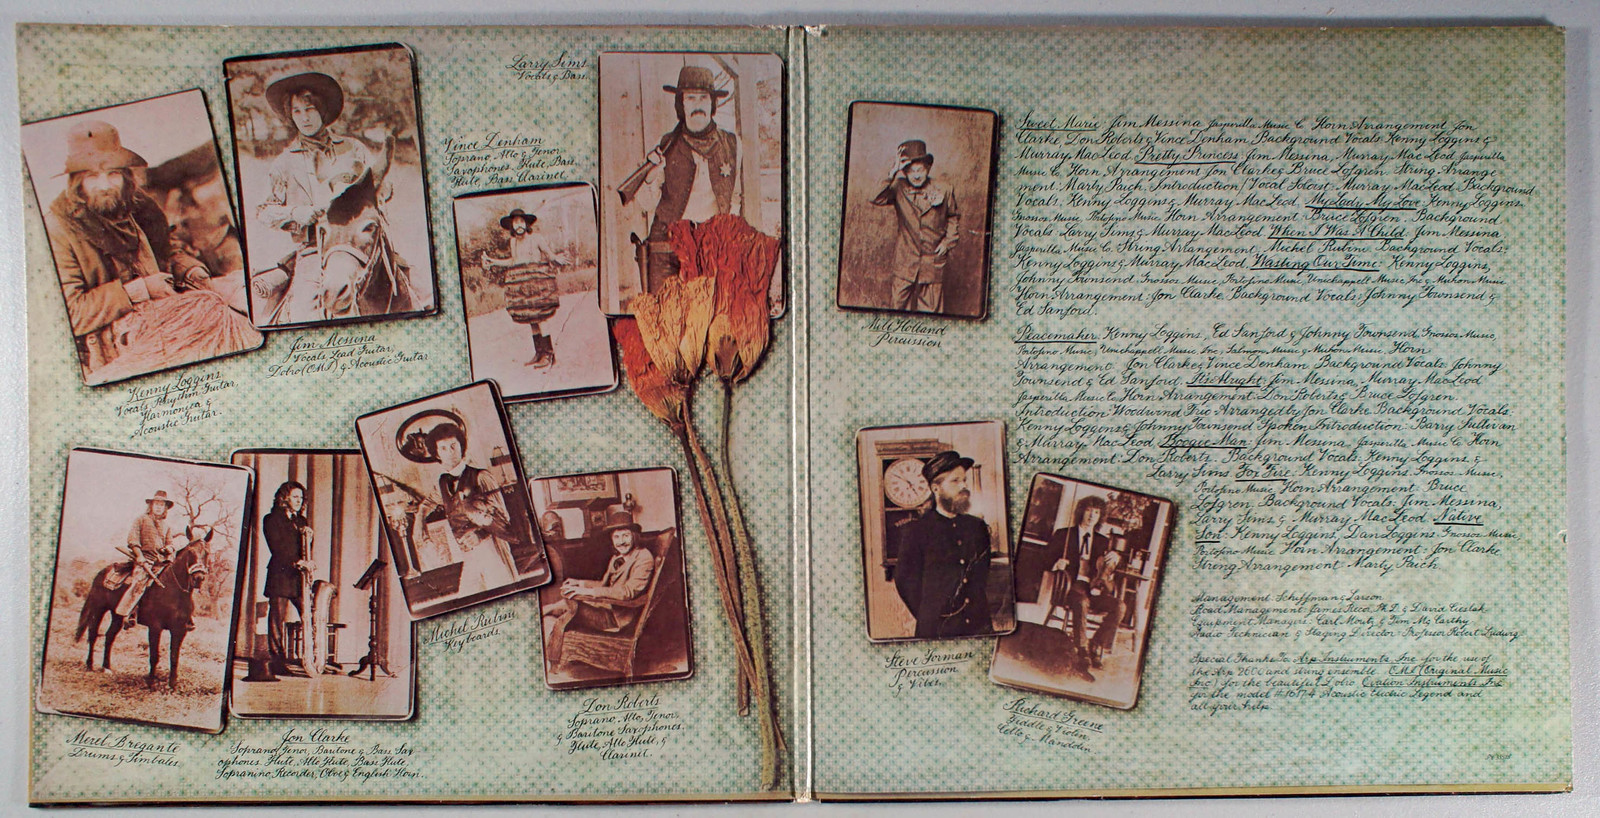 Larry Sims
Vocals & Bass
Vince Denham
Soprano, Alto & Tenor
Saxophones, Flute, Bass
Flute, Bass Clarinet
Jim Messina
Vocals, Lead Guitar,
Dobro (OMI) & Acoustic Guitar
Kenny Loggins
Vocals, Rhythm Guitar,
Harmonica &
Acoustic Guitar.
Michel Rubini
Keyboards
Don Roberts
Soprano, Alto, Tenor,
& Baritone Saxophones,
Flute, Alto Flute, &
Clarinet.
Merel Bregante
Drums & Timbales
Jon Clarke
Soprano, Tenor, Baritone & Bass Sax
ophones. Flute, Alto Flute, Bass Flute,
Sopranino Recorder, Oboe & English Horn.
Milt Holland
Percussion
Steve Forman
Percussion
& Vibes
Richard Greene
Fiddle & Violin,
Cello & Mandolin
Sweet Marie Jim Messina Jasperilla Music Co Horn Arrangement Jon
Clarke, Don Roberts & Vince Denham Background Vocals: Kenny Loggins &
Murray MacLeod. Pretty Princess: Jim Messina, Murray MacLeod Jasperilla
Music Co. Horn Arrangement Jon Clarke & Bruce Lofgren. String Arrange
ment: Marty Paich. Introduction/Vocal Soloist: Murray MacLeod Background
Vocals: Kenny Loggins & Murray MacLeod. My Lady, My Love: Kenny Loggins
Gnossos Music, Portofino Music. Horn Arrangement: Bruce Lofgren. Background
Vocals Larry Sims & Murray MacLeod When I Was A Child: Jim Messina
Jasperilla Music Co. String Arrangement, Michel Rubini Background Vocals:
Kenny Loggins & Murray MacLeod. Wasting Our Time: Kenny Loggins,
Johnny Townsend Gnossos Music, Portofino Music, Unichappell Music Inc & Mukon Music
Horn Arrangement: Jon Clarke Background Vocals: Johnny Townsend &
Ed Sanford.
Peacemaker: Kenny Loggins, Ed Sanford & Johnny Townsend Gnossos Music,
Portofino Music, Unichappell Music, Inc, Salmon Music & Mukon Music. Horn
Arrangement Jon Clarke & Vince Denham. Background Vocals: Johnny
Townsend & Ed Sanford. It's Alright: Jim Messina, Murray MacLeod
Jasperilla Music Co Horn Arrangement: Don Roberts & Bruce Lofgren.
Introduction Woodwind Trio Arranged by Jon Clarke Background Vocals:
Kenny Loggins & Johnny Townsend Spoken Introduction: Barry Sullivan
& Murray MacLeod Boogie Man: Jim Messina Jasperilla Music Co Horn
Arrangement: Don Roberts. Background Vocals: Kenny Loggins &
Larry Sims Fox Fire: Kenny Loggins Gnossos Music,
Portofino Music Horn Arrangement: Bruce
Lofgren. Background Vocals: Jim Messina,
Larry Sims & Murray MacLeod Native
Son: Kenny Loggins, Dan Loggins Gnossos Music,
Portofino Music Horn Arrangement: Jon Clarke
String Arrangement Marty Paich
Management: Schiffman & Larson
Road Management: James Recor, Ph.D. & David Cieslak
Equipment Managers: Carl Moritz & Jim McCarthy
Audio Technician & Staging Director: Professor Robert Ludwig
Special Thanks To: Arp Instruments, Inc for the use of
the Arp 2600 and string ensemble. O.M.I. (Original Music
Inc.) for the beautiful Dobro Ovation Instruments, Inc
for the model #1617-4 Acoustic Electric Legend and
all your help.